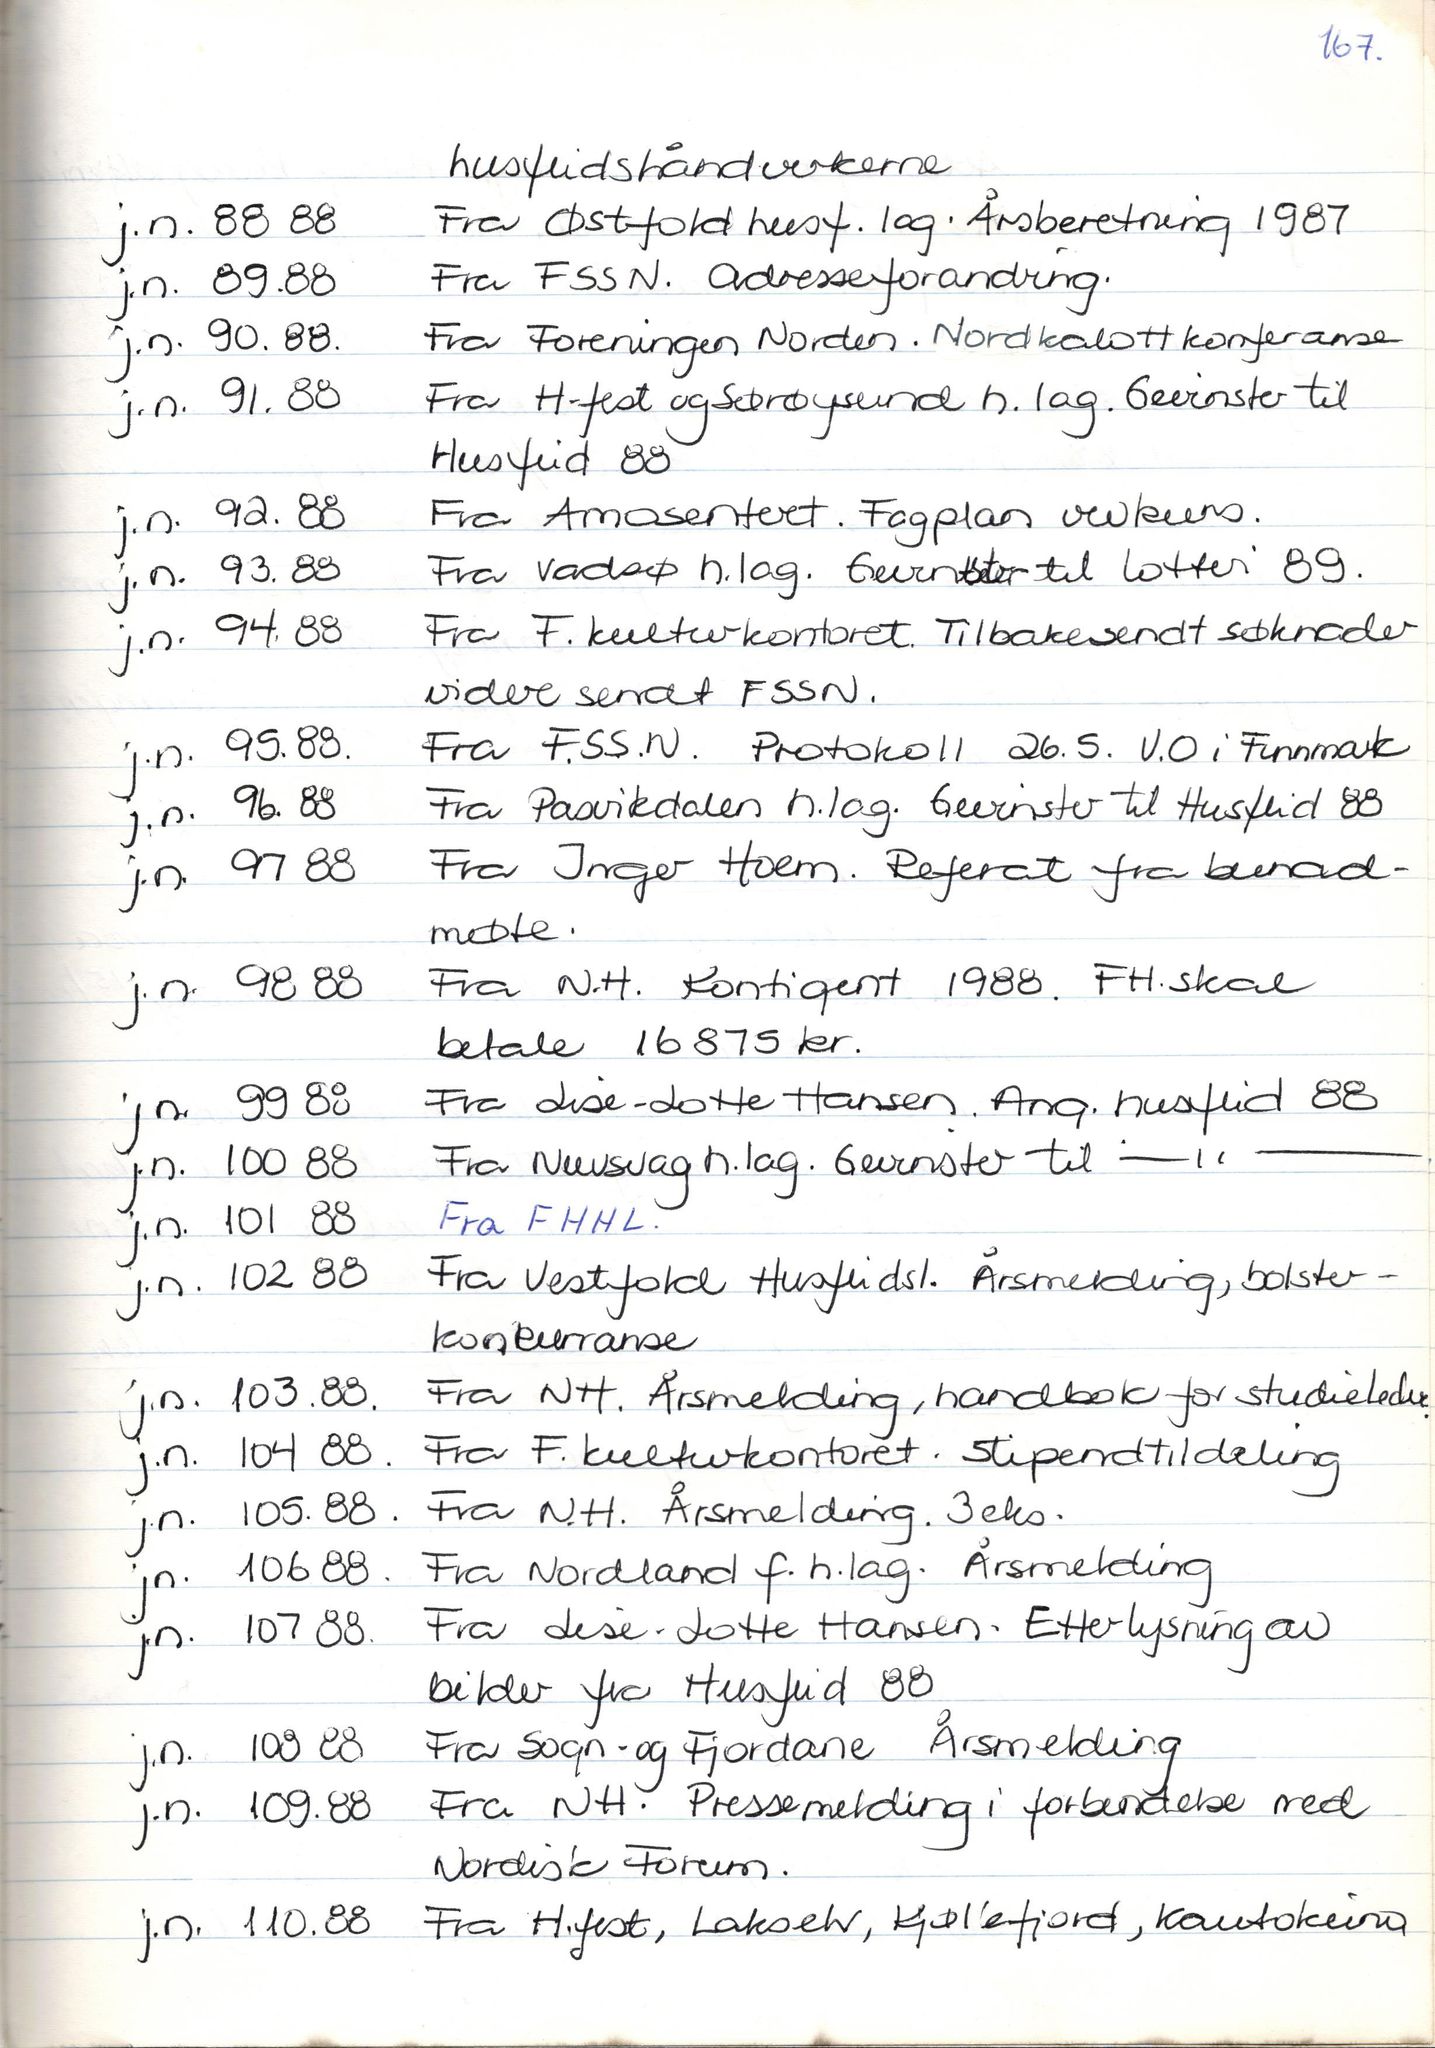 167.
husflidshåndverkerne
j.n. 88 88 Fra Østfold husf. lag. Årsberetning 1987
j.n. 89.88 Fra FSSN. Adresseforandring.
j.n. 90.88. Fra Foreningen Norden. Nordkalottkonferanse
j.n. 91.88 Fra H-fest og Sørøysund h.lag. Gevinster til
Husflid 88
j.n. 92.88 Fra Amasenteret. Fagplan vevkurs.
j.n. 93.88 Fra Vadsø h.lag. Gevinster til lotteri 89.
j.n. 94.88 Fra F.kulturkontoret. Tilbakesendt søknader
videresendt FSSN.
j.n. 95.88. Fra F.SS.N. Protokoll 26.5. V.O i Finnmark
j.n. 96.88 Fra Pasvikdalen h.lag. Gevinster til Husflid 88
j.n. 97 88 Fra Inger Hoem. Referat fra bunad-
møte.
j.n. 98 88 Fra N.H. Kontigent 1988. FH.skal
betale 16875 kr.
j.n. 99 88 Fra Lise-Lotte Hansen. Ang. husflid 88
j.n. 100 88 Fra Nuvsvåg h.lag. Gevinster til —ıı—
j.n. 101 88 Fra FHHL.
j.n. 102 88 Fra Vestfold Husflidsl. Årsmelding, bolster-
konkurranse
j.n. 103.88. Fra NH. Årsmelding, handbok for studieleder.
j.n. 104 88. Fra F.kulturkontoret. Stipendtildeling
j.n. 105.88. Fra N.H. Årsmelding. 3eks.
j.n. 106 88. Fra Nordland f.h.lag. Årsmelding
j.n. 107 88. Fra Lise-Lotte Hansen. Etterlysning av
bilder fra Husflid 88
j.n. 108 88 Fra Sogn-og Fjordane Årsmelding
j.n. 109.88 Fra NH. Pressemelding i forbindelse med
Nordisk Forum.
j.n. 110.88 Fra H.fest, Lakselv, Kjøllefjord, Kautokeino